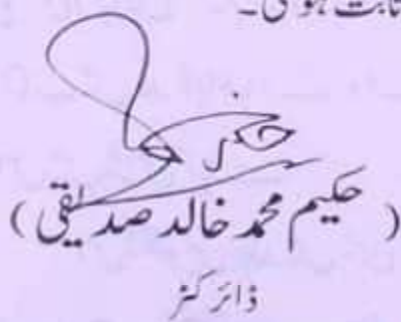 ثابت ہو گی۔
( حکیم محمد خالد صدیقی )
ڈائرکٹر